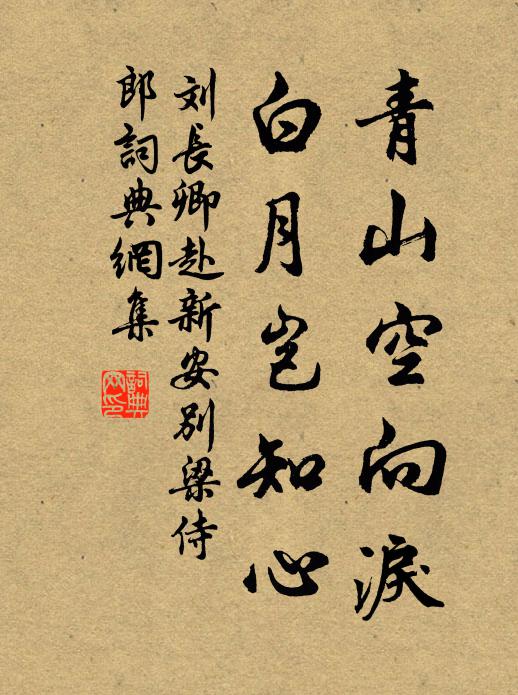 青山空向淚
白月岂知心
刘長卿赴新安別梁侍
郎詞典網集
詞典
网印